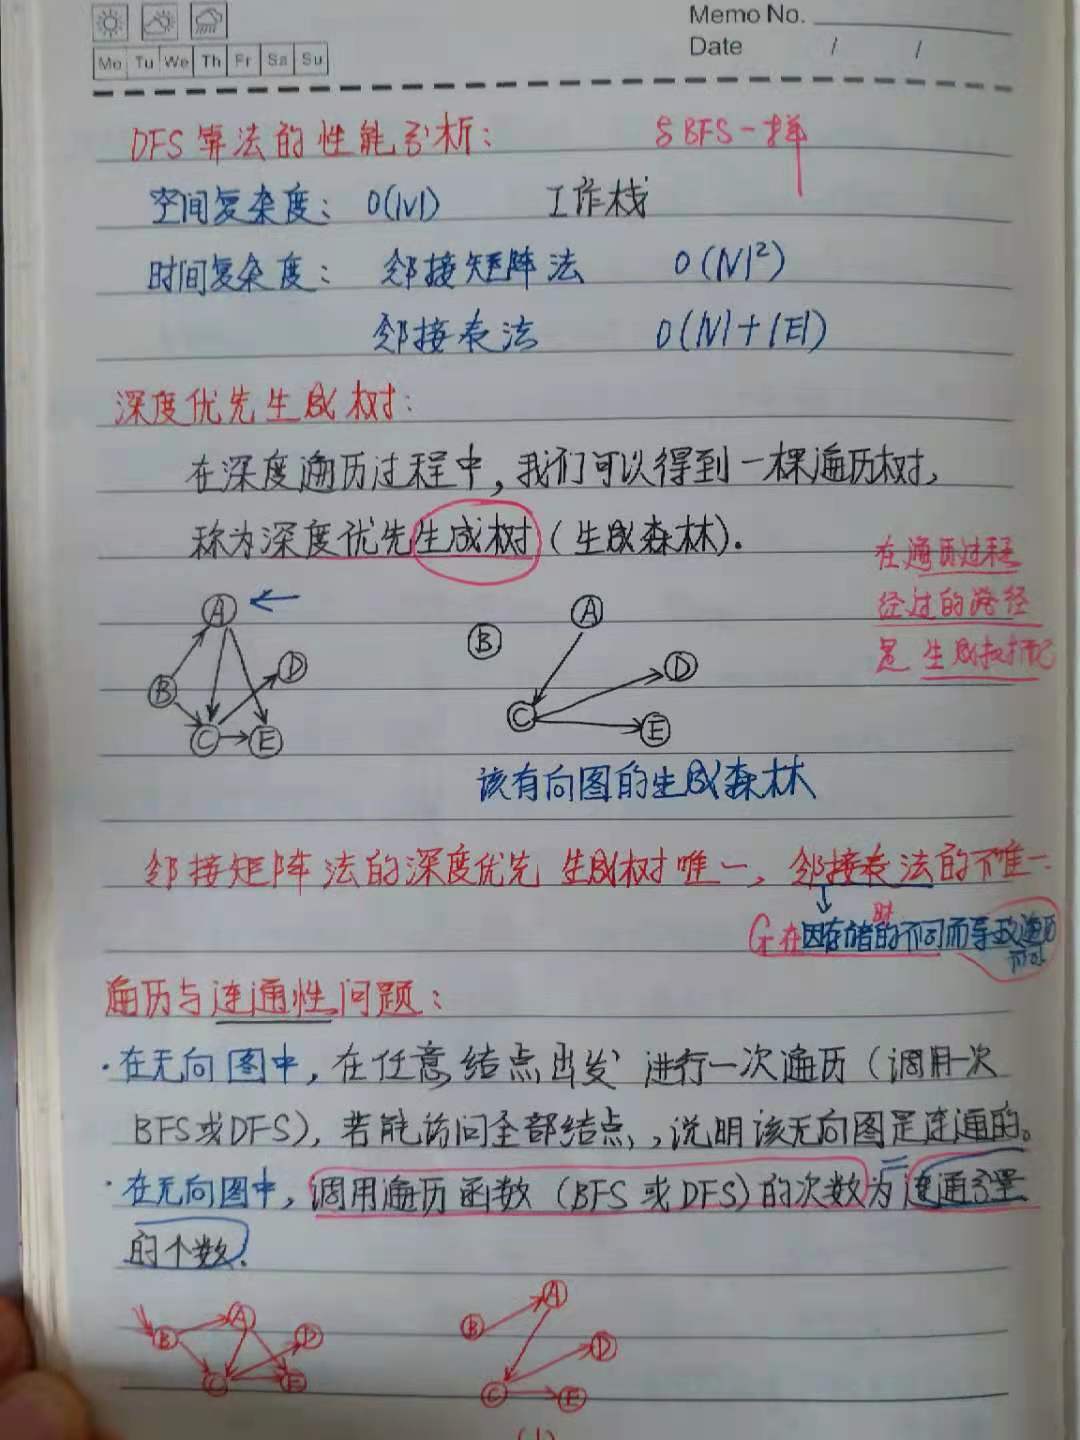 Memo No.
Date / /
Mo Tu We Th Fr Sa Su
DFS算法的性能分析: 与BFS一样
空间复杂度: O(|V|) 工作栈
时间复杂度: 邻接矩阵法 O(|V|²)
邻接表法 O(|V|+|E|)
深度优先生成树:
在深度遍历过程中,我们可以得到一棵遍历树,
称为深度优先生成树(生成森林).
在遍历过程
经过的路径
是生成树
A B C D E
B A C D E
该有向图的生成森林
邻接矩阵法的深度优先生成树唯一,邻接表法的不唯一
G在因存储时的不同而导致遍历
不同
遍历与连通性问题:
·在无向图中,在任意结点出发 进行一次遍历(调用一次
BFS或DFS),若能访问全部结点,,说明该无向图是连通的。
·在无向图中,调用遍历函数(BFS或DFS)的次数为连通分量
的个数.
B A C D E
B A C D E
(1)